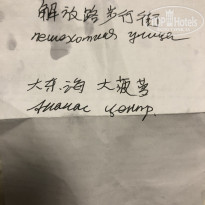 解放路步行街
пешеходная улица
大东海 大菠萝
Ананас центр.